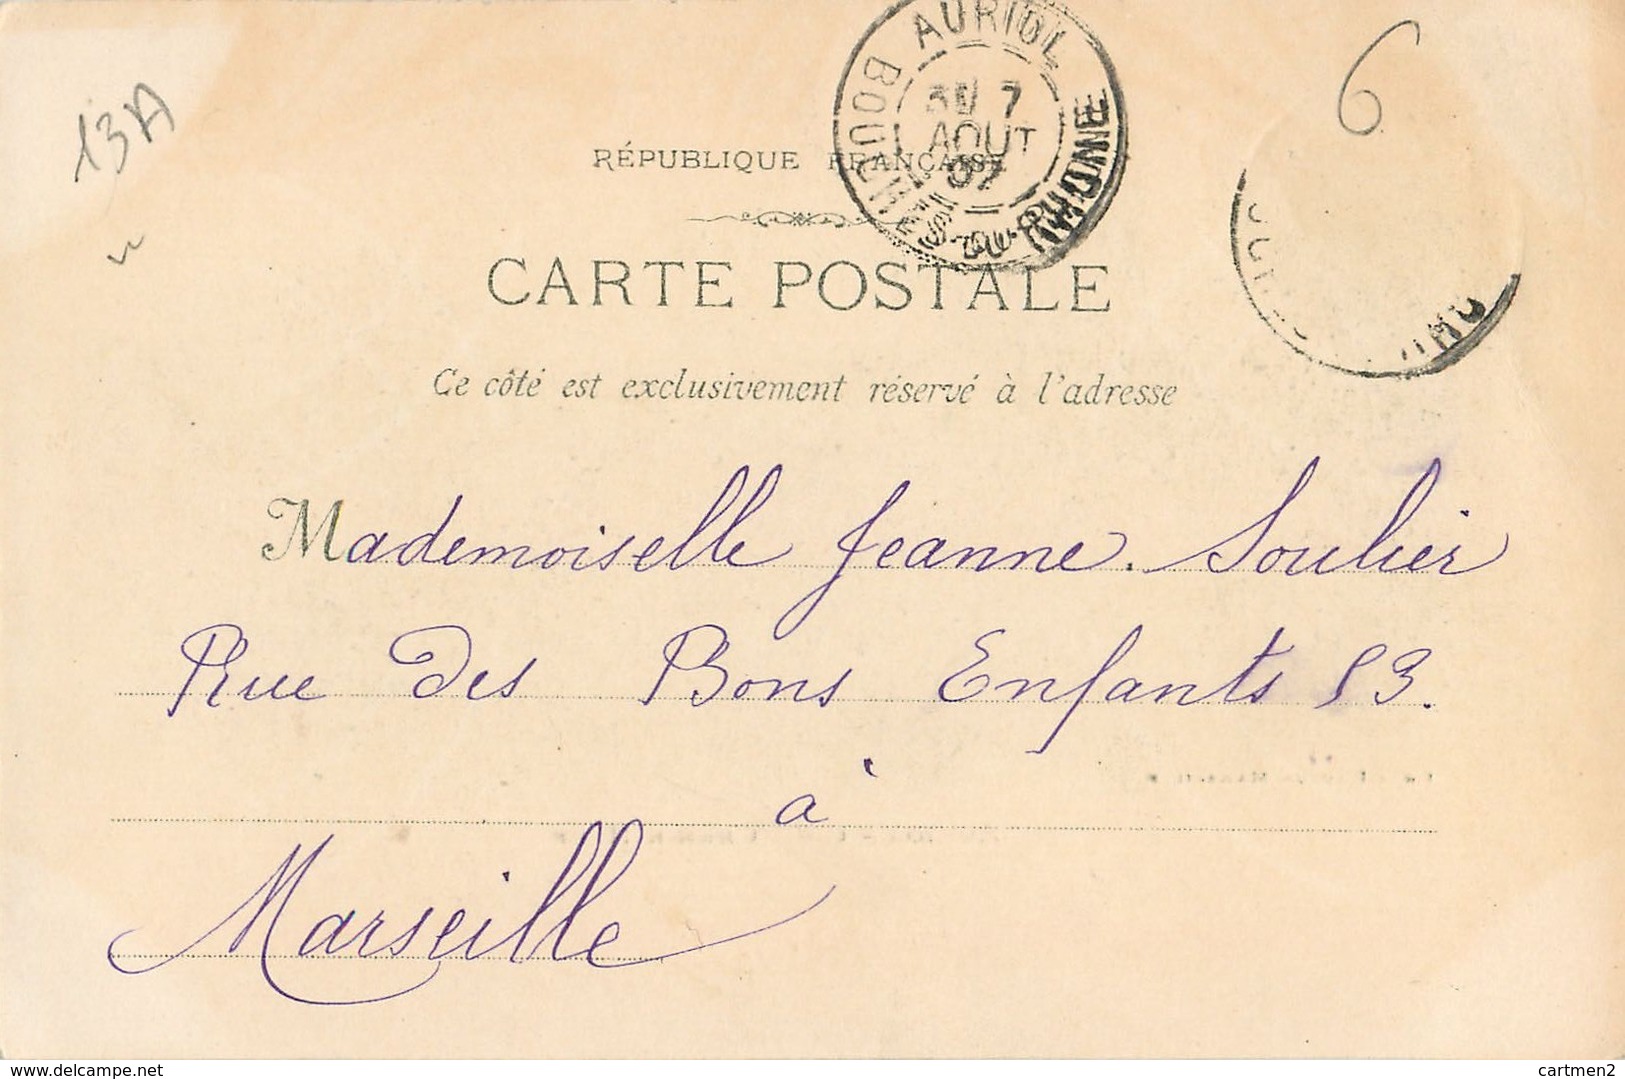 13A
6
AURIOL
BOUCHES-DU-RHONE
7
AOUT
07
RÉPUBLIQUE FRANÇAISE
CARTE POSTALE
Ce côté est exclusivement réservé à l'adresse
Mademoiselle Jeanne. Soulier
Rue des Bons Enfants 83.
à
Marseille
www.delcampe.net
cartmen2